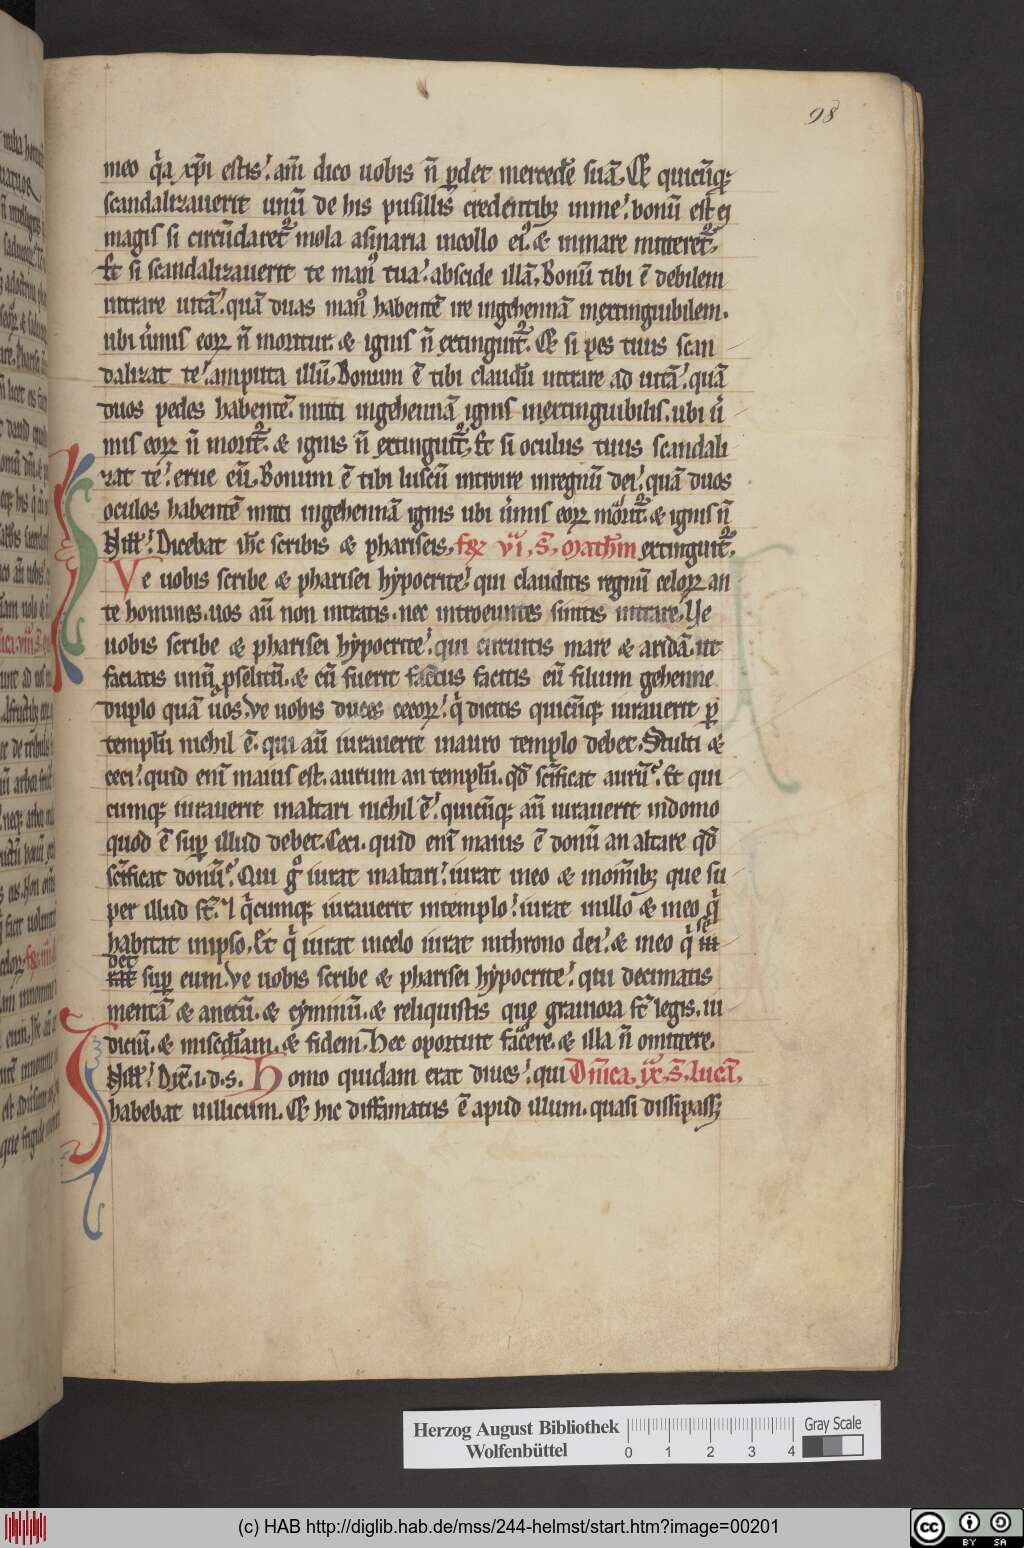 98
meo q̇a xp̄i estis. am̄ dico uobis n̄ ꝑdet mercedē suā. Et quicūq;
scandalizauerit unū de his pusillis credentib; inme. bonū est ei
magis si circūdaret᷑ mola asinaria incollo ei᷒. & inmare mitteret᷑.
Et si scandalizauerit te man᷒ tua. abscide illā. Bonū tibi ē debilem
intrare uitā. quā duas man᷒ habentē ire ingehennā inextinguibilem.
ubi u̇mis eoꝝ n̄ moritur. & ignis n̄ extinguit᷑. Et si pes tuus scan
dalizat te. amputa illū. Bonum ē tibi claudū intrare ad uitā. quā
duos pedes habentē. mitti ingehennā ignis inextinguibilis. ubi u̇
mis eoꝝ n̄ morit᷑. & ignis n̄ extinguit᷑. Et si oculus tuus scandali
zat te. erue eū. Bonum ē tibi luscū introire inregnū dei. quā duos
oculos habentē mitti ingehennā ignis ubi u̇mis eoꝝ morit᷑. & ignis n̄
In ill̄. Dicebat ih̄c scribis & phariseis. extinguit᷑.
Ve uobis scribe & pharisei hypocrite. qui clauditis regnū celoꝝ an
te homines. uos aū non intratis. nec introeuntes sinitis intrare. Ve
uobis scribe & pharisei hypocrite. qui circuitis mare & aridā. ut
faciatis unū ꝓselitū. & cū fuerit factus facitis eū filium gehenne
duplo quā uos. Ve uobis duces cecoꝝ. q̇ dicitis quicūq; iurauerit ꝑ
templū nichil ē. qui aū iurauerit inauro templo debet. Stulti &
ceci. quid eni̅ maius est. aurum an templū. qd̄ sc̄ificat aurū. Et qui
cumq; iurauerit inaltari nichil ē. quicūq; aū iurauerit indono
quod ē suꝑ illud debet. Ceci. quid eni̅ maius ē donū an altare qd̄
sc̄ificat donū. Qui g̊ iurat inaltari. iurat ineo & inomīb; que su
per illud st̄. q̇cumq; iurauerit intemplo. iurat inillo & ineo q̇
habitat inipso. Et q̇ iurat incelo iurat inthrono dei. & ineo q̇ se
det suꝑ eum. Ve uobis scribe & pharisei hypocrite. qui decimatis
mentā & anetū. & cyminū. & reliquistis que grauiora st̄ legis. iu
diciū. & misc̄diam. & fidem. Hec oportuit facere. & illa n̄ omittere.
In ill̄. Dix̄. i. d. s. Homo quidam erat diues. qui Dn̄ica. ix. S. lucā.
habebat uillicum. Et hic diffamatus ē apud illum. quasi dissipass;
Herzog August Bibliothek
Wolfenbüttel
0 1 2 3 4
Gray Scale
(c) HAB http://diglib.hab.de/mss/244-helmst/start.htm?image=00201
cc BY SA